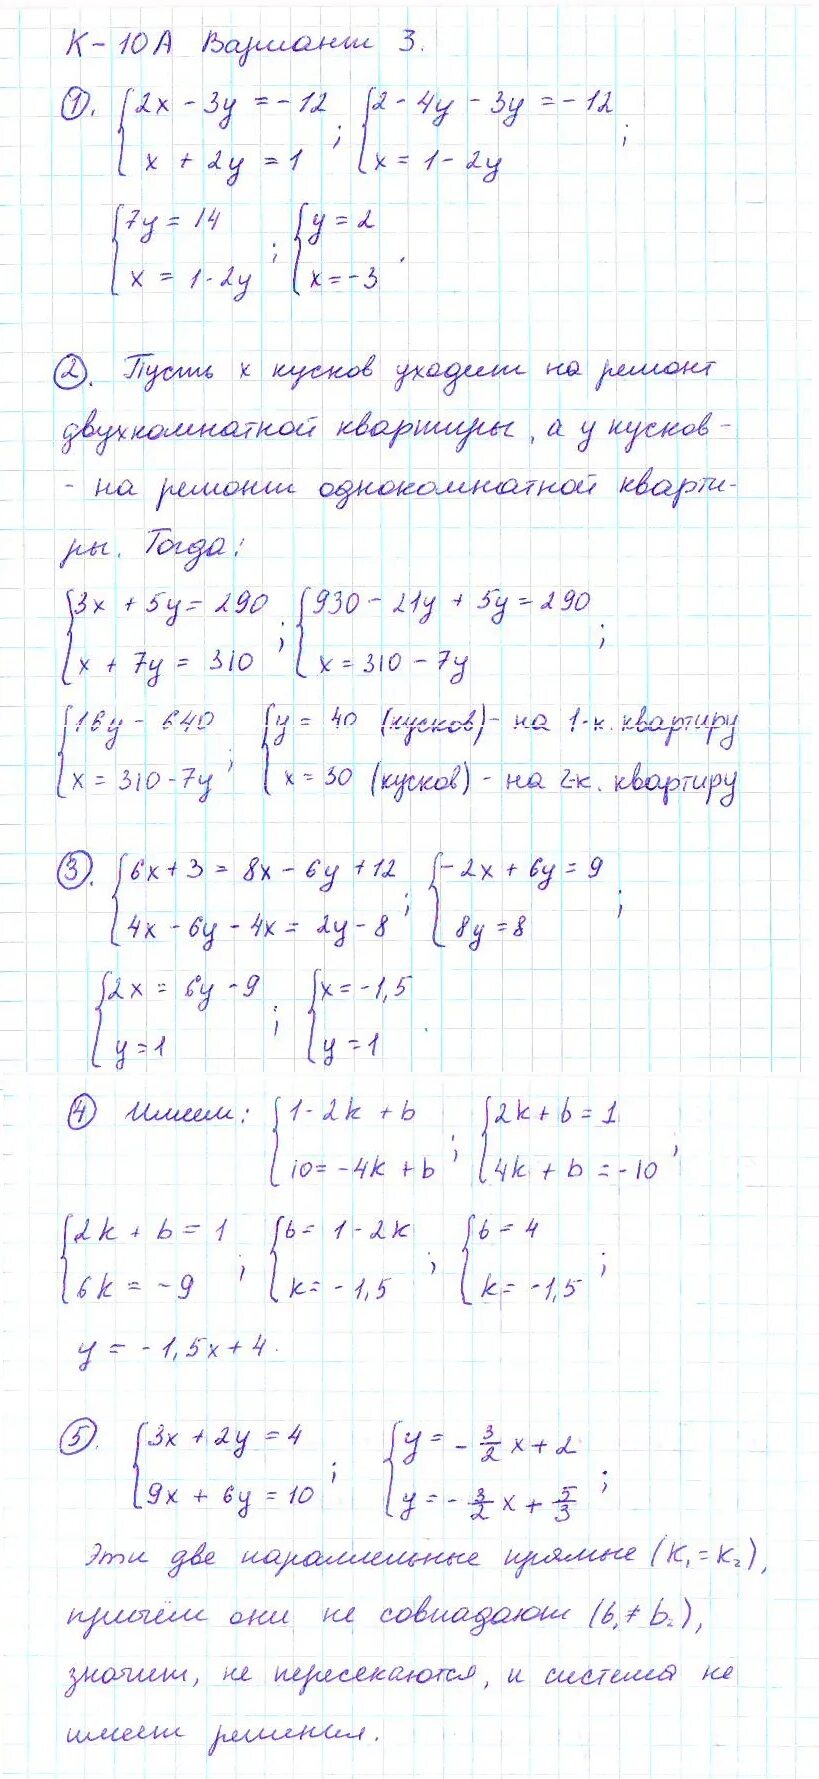 К-10А Вариант 3.
①. {2x - 3y = -12 ; {2 - 4y - 3y = -12 ;
x + 2y = 1 x = 1 - 2y
{7y = 14 ; {y = 2 .
x = 1 - 2y x = -3
②. Пусть x кусков уходит на ремонт
двухкомнатной квартиры, а y кусков -
- на ремонт однокомнатной кварти-
ры. Тогда:
{3x + 5y = 290 ; {930 - 21y + 5y = 290 ;
x + 7y = 310 x = 310 - 7y
{16y - 640 ; {y = 40 (кусков) - на 1-к. квартиру
x = 310 - 7y x = 30 (кусков) - на 2-к. квартиру
③. {6x + 3 = 8x - 6y + 12 ; {-2x + 6y = 9 ;
4x - 6y - 4x = 2y - 8 8y = 8
{2x = 6y - 9 ; {x = -1,5 .
y = 1 y = 1
④ Имеем: {1 - 2k + b ; {2k + b = 1 ;
10 = -4k + b 4k + b = -10
{2k + b = 1 ; {b = 1 - 2k ; {b = 4 ;
6k = -9 k = -1,5 k = -1,5
y = -1,5x + 4.
⑤. {3x + 2y = 4 ; {y = -3/2 x + 2 ;
9x + 6y = 10 y = -3/2 x + 5/3
Эти две параллельные прямые (k₁ = k₂),
причём они не совпадают (b₁ ≠ b₂),
значит, не пересекаются, и система не
имеет решения.